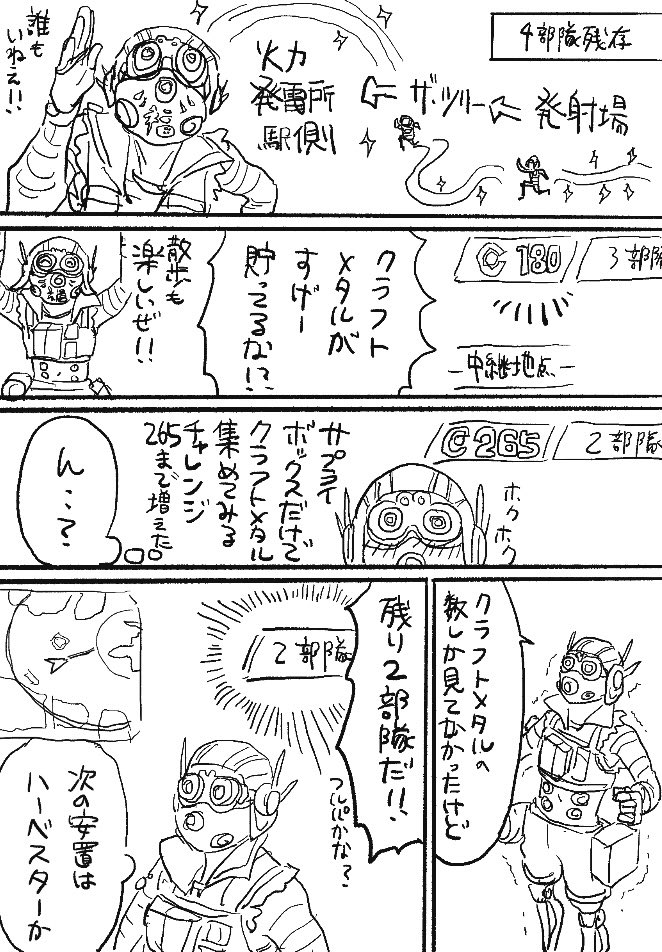 4部隊残存
発射場
ザ・ツリー
火力
発電所
駅側
誰も
いねぇ!!
3部隊
C 180
中継地点
クラフト
メタルが
すげー
貯ってるな!?
散歩も
楽しいぜ!!
2部隊
C 265
ホク
ホク
サプライ
ボックスだけで
クラフトメタル
集めてみる
チャレンジ
265まで増えた
ん…?
クラフトメタルの
数しか見てなかったけど
残り2部隊だ!!
2部隊
フルパかな?
次の安置は
ハーベスターか